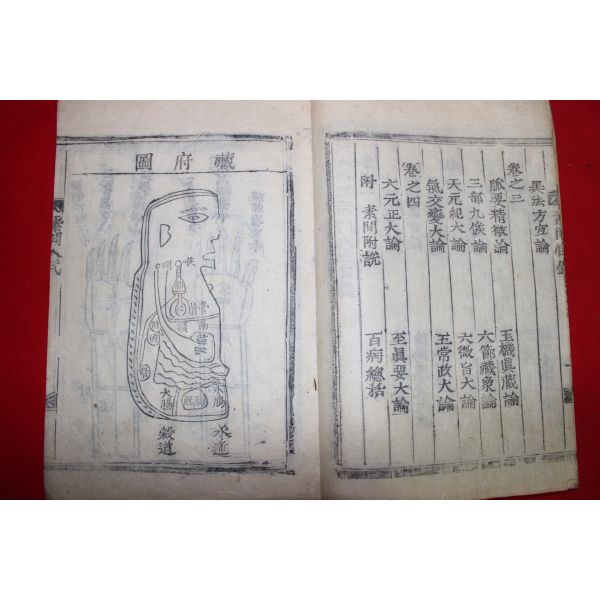 異法方宜論
玉機眞蔵論
卷之三
脉要精微論
六節藏象論
三部九候論
六微旨大論
天元紀大論
五常政大論
氣交變大論
卷之四
六元正大論
至眞要大論
附 素問附說
百病總括
藏府圖
咽
喉
大腸
水道
穀道